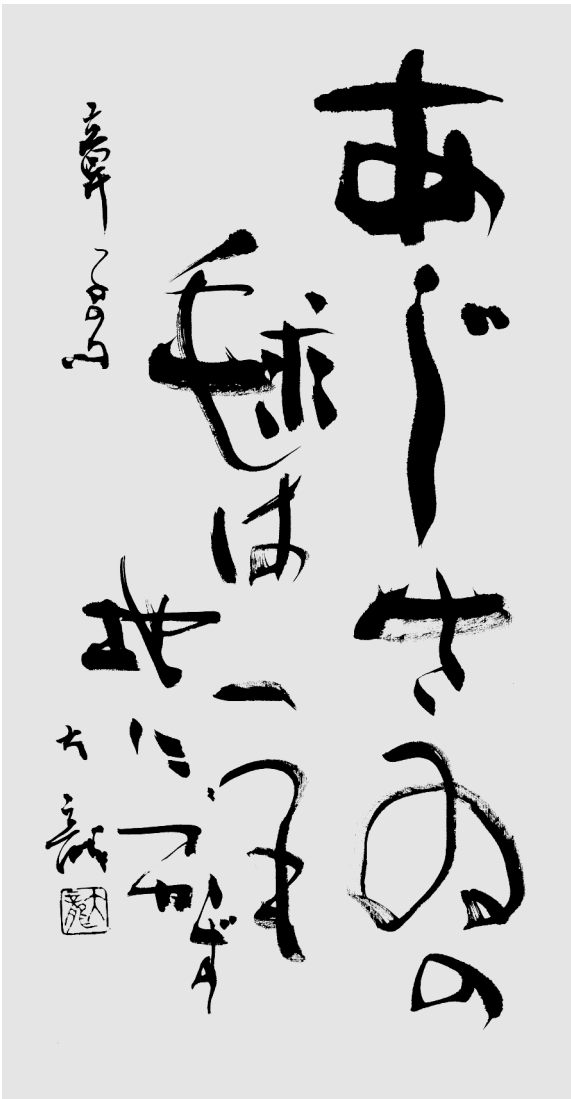 あじさゐの
毬は一つも
地につかず
章子の句
大龍